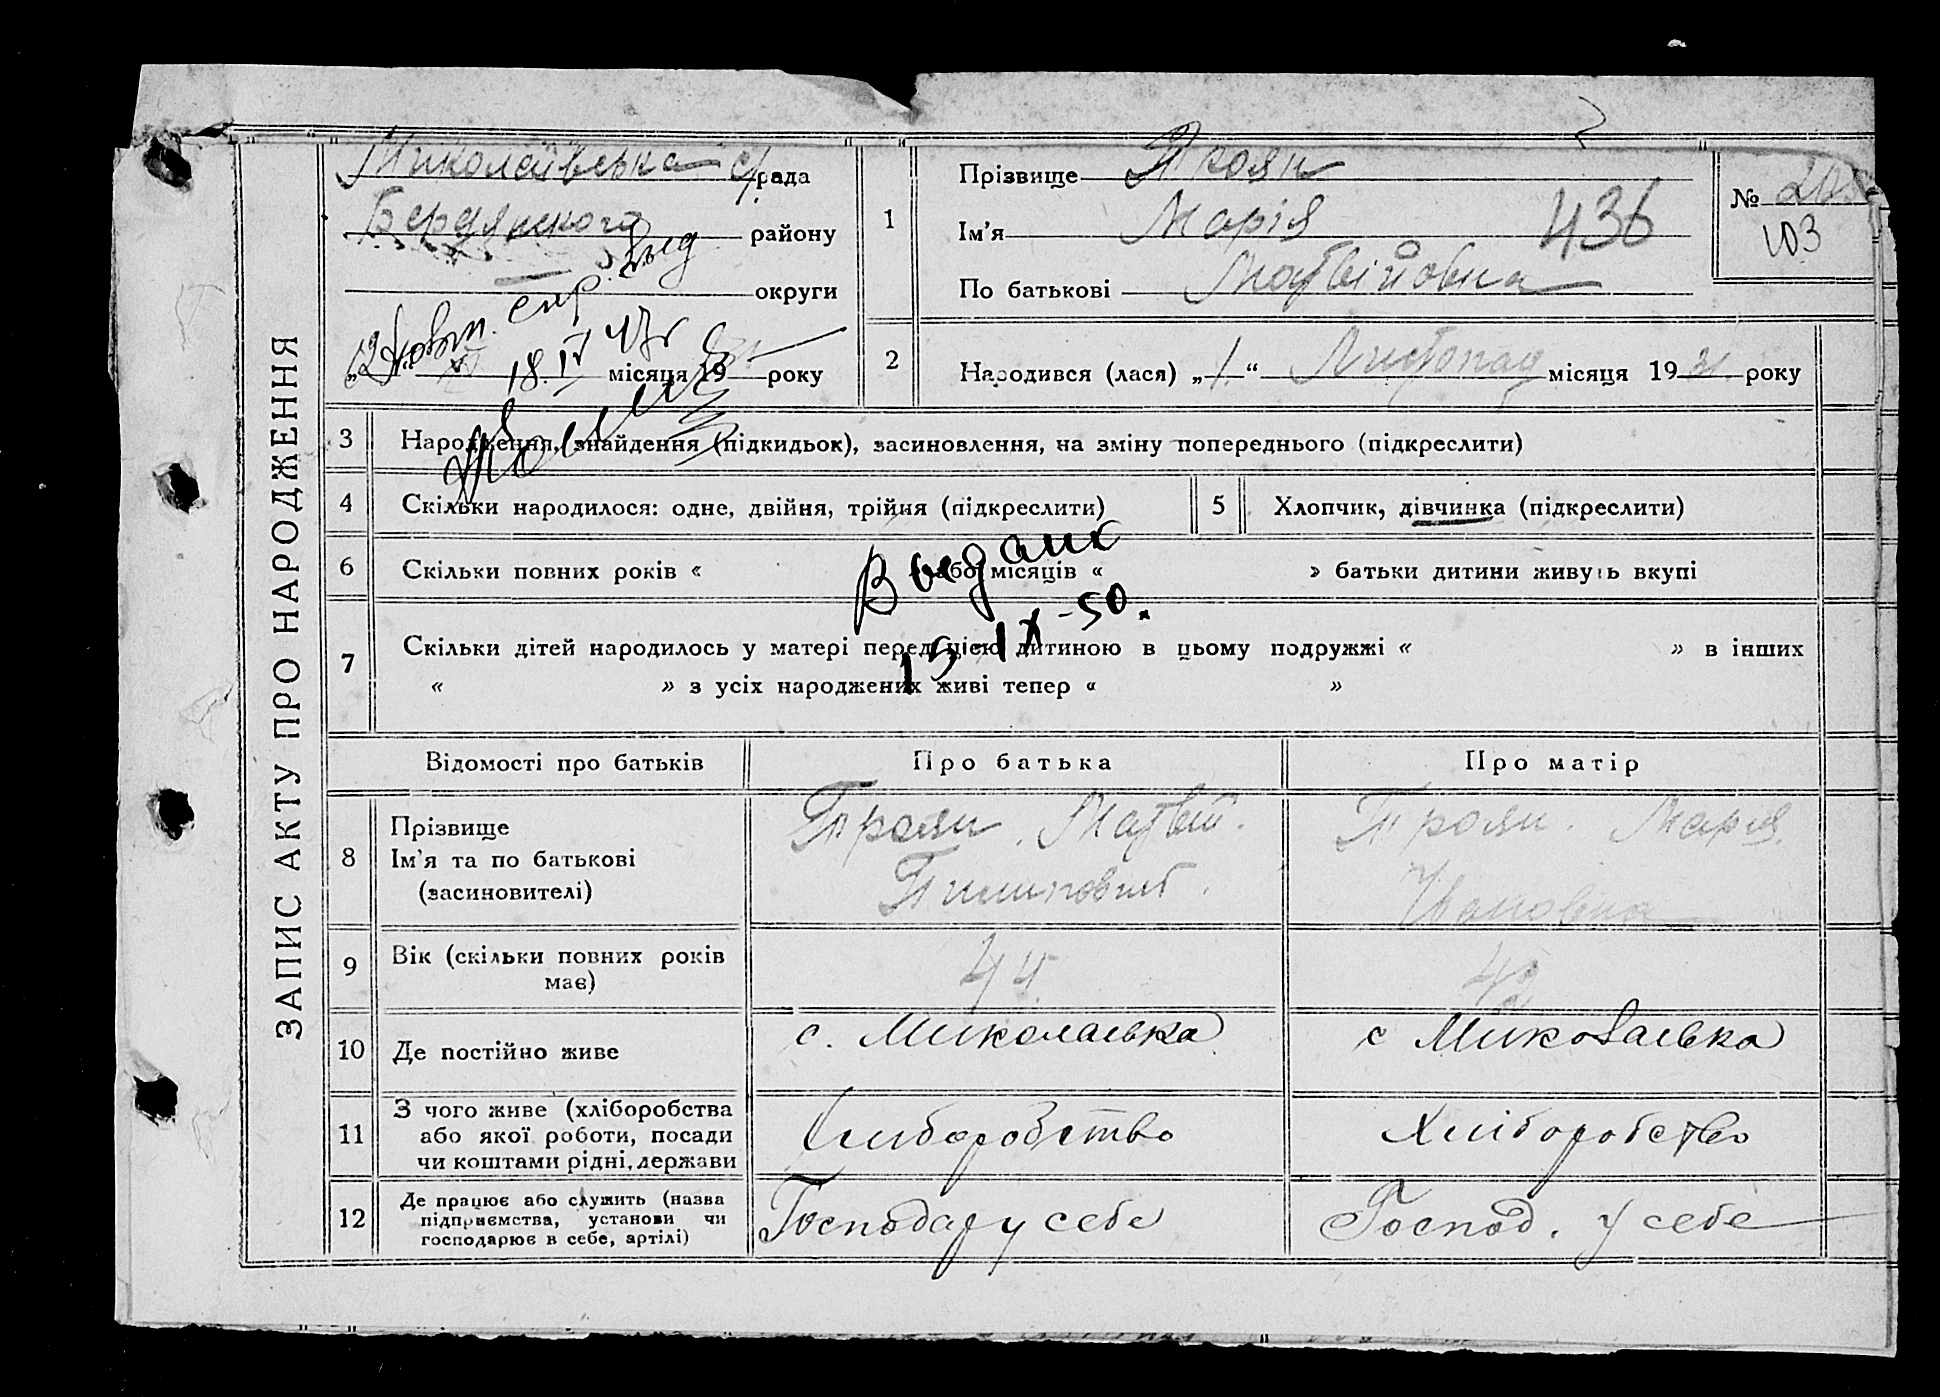 ЗАПИС АКТУ ПРО НАРОДЖЕННЯ
Миколаївська с/рада
Бердянского району
округи
місяця 19 року
Повт. спр. выд
18.IV 47г
1
Прізвище Троян
Ім'я Марія
По батькові Матвійовна
436
№
103
2
Народився (лася) „1“ Листопад місяця 1931 року
3 Народження, знайдення (підкидьок), засиновлення, на зміну попереднього (підкреслити)
4 Скільки народилося: одне, двійня, трійня (підкреслити)
5 Хлопчик, дівчинка (підкреслити)
6 Скільки повних років « або місяців « » батьки дитини живуть вкупі
Выдано
15 IX-50.
7 Скільки дітей народилось у матері перед цією дитиною в цьому подружжі « » в інших
« » з усіх народжених живі тепер « »
Відомості про батьків Про батька Про матір
8 Прізвище
Ім'я та по батькові
(засиновителі)
Троян Матвій
Пилипович
Троян Марія
Ивановна
9 Вік (скільки повних років
має)
44
42
10 Де постійно живе с. Миколаївка с Миколаївка
11 З чого живе (хліборобства
або якої роботи, посади
чи коштами рідні, держави
Хліборобство
Хліборобство
12 Де працює або служить (назва
підприємства, установи чи
господарює в себе, артілі)
Господар у себе
Господ. у себе